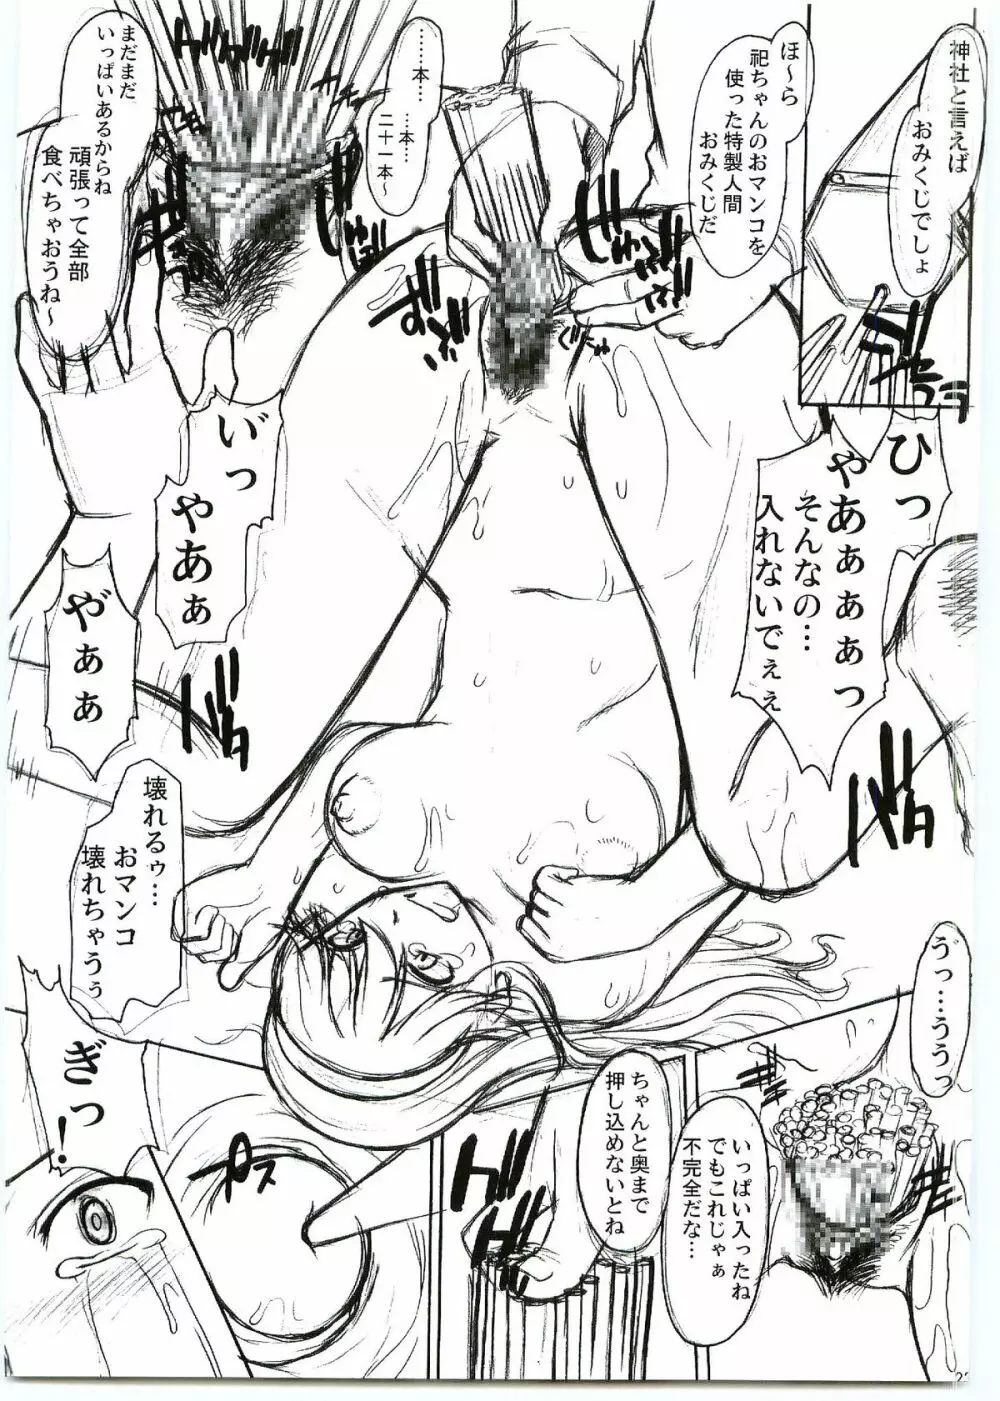 神社と言えば
おみくじでしょ
ほ～ら
祀ちゃんのおマンコを
使った特製人間
おみくじだ
……本…
…本…
二十一本～
まだまだ
いっぱいあるからね
頑張って全部
食べちゃおうね～
ひっ
やあぁぁぁっ
そんなの…
入れないでぇぇ
い゛っ
やあぁ
や゛ぁぁ
壊れるゥ…
おマンコ
壊れちゃうぅ
う゛っ…ううっ
いっぱい入ったね
でもこれじゃぁ
不完全だな…
ちゃんと奥まで
押し込めないとね
ぎっ！
プス